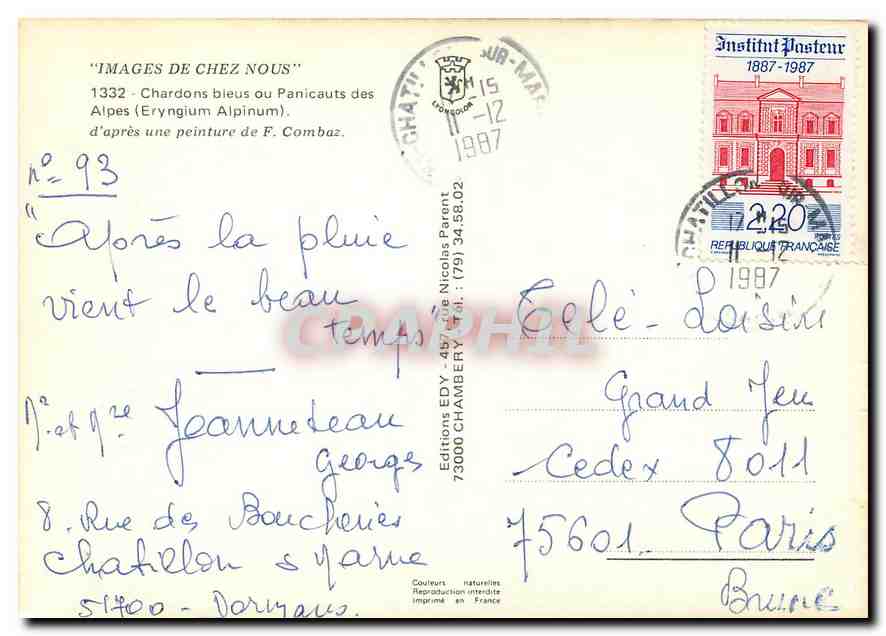 "IMAGES DE CHEZ NOUS"
1332 - Chardons bleus ou Panicauts des
Alpes (Eryngium Alpinum).
d'après une peinture de F. Combaz.
nº 93
"Après la pluie
vient le beau
temps"
Mr et Mme Jeanneteau
Georges
8. Rue des Boucheries
Chatillon s Marne
51700 - Dormans.
LYONCOLOR
CHATILLON-SUR-MAR
H
15
11 -12
1987
Editions EDY - 457, rue Nicolas Parent
73000 CHAMBERY - Tél. : (79) 34.58.02
CPAPHIL
Institut Pasteur
1887-1987
2,20
POSTES
REPUBLIQUE FRANÇAISE
CHATILLON SUR MA
17 H 15
11 -12
1987
Télé-Loisirs
Grand Jeu
Cedex 8011
75601 Paris
Brune
Couleurs naturelles
Reproduction interdite
imprimé en France